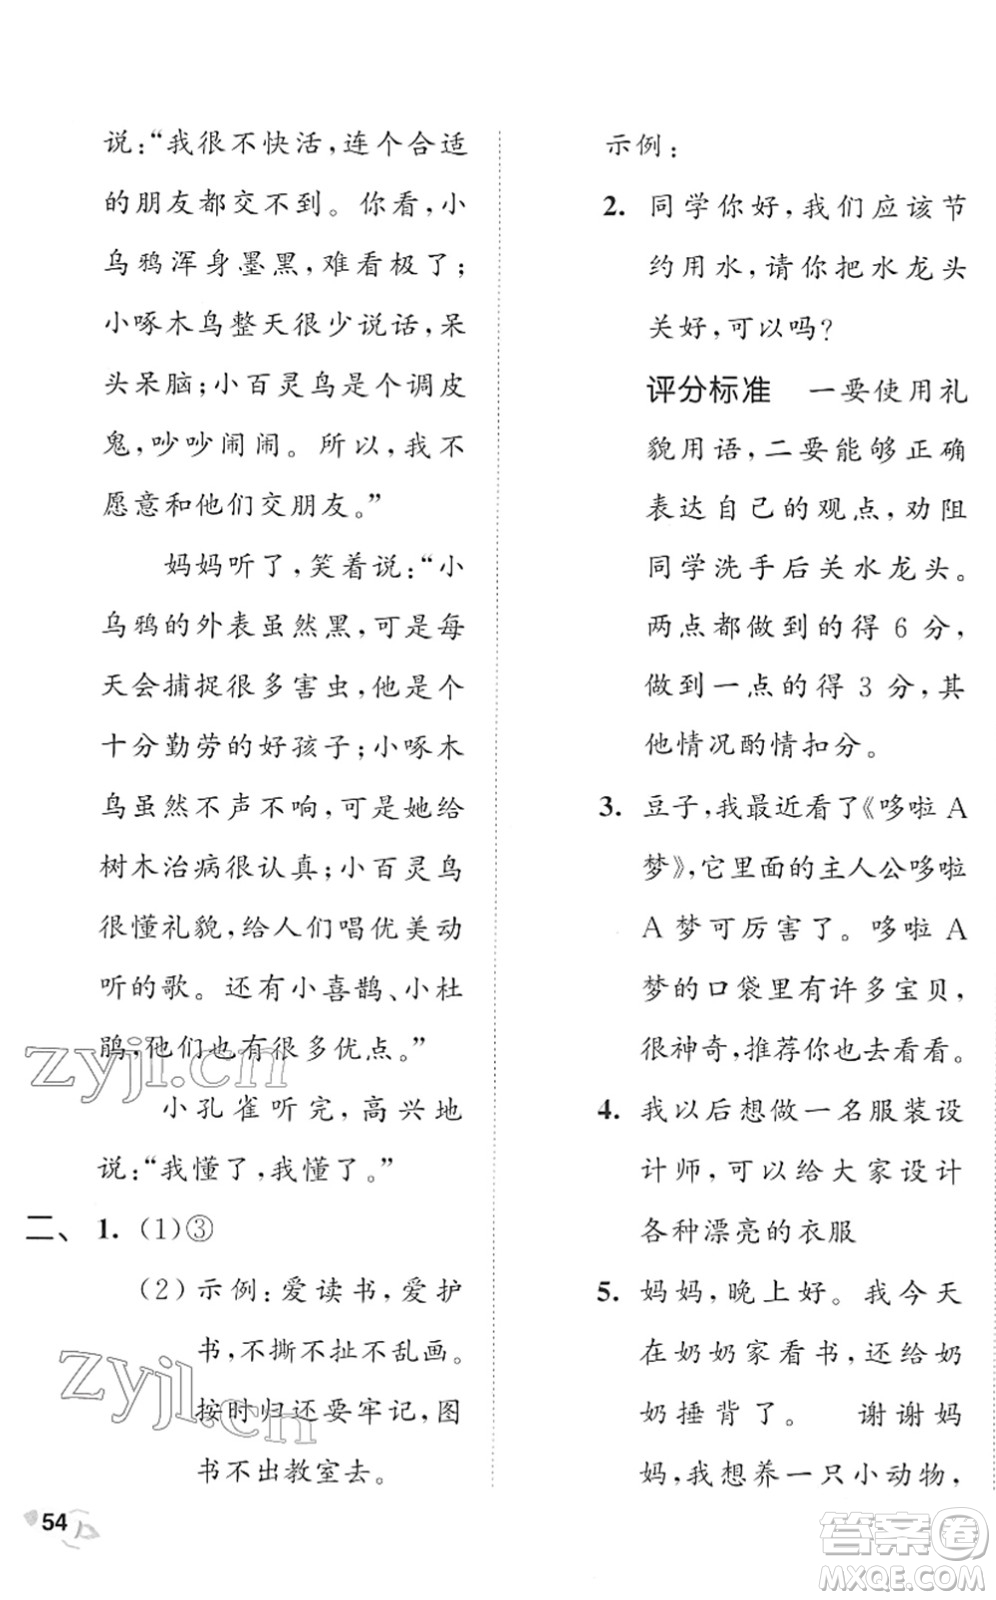 说：“我很不快活，连个合适
的朋友都交不到。你看，小
乌鸦浑身墨黑，难看极了；
小啄木鸟整天很少说话，呆
头呆脑；小百灵鸟是个调皮
鬼，吵吵闹闹。所以，我不
愿意和他们交朋友。”
妈妈听了，笑着说：“小
乌鸦的外表虽然黑，可是每
天会捕捉很多害虫，他是个
十分勤劳的好孩子；小啄木
鸟虽然不声不响，可是她给
树木治病很认真；小百灵鸟
很懂礼貌，给人们唱优美动
听的歌。还有小喜鹊、小杜
鹃，他们也有很多优点。”
小孔雀听完，高兴地
说：“我懂了，我懂了。”
二、1.（1）③
（2）示例：爱读书，爱护
书，不撕不扯不乱画。
按时归还要牢记，图
书不出教室去。
54
示例：
2. 同学你好，我们应该节
约用水，请你把水龙头
关好，可以吗？
评分标准 一要使用礼
貌用语，二要能够正确
表达自己的观点，劝阻
同学洗手后关水龙头。
两点都做到的得 6 分，
做到一点的得 3 分，其
他情况酌情扣分。
3. 豆子，我最近看了《哆啦 A
梦》，它里面的主人公哆啦
A 梦可厉害了。哆啦 A
梦的口袋里有许多宝贝，
很神奇，推荐你也去看看。
4. 我以后想做一名服装设
计师，可以给大家设计
各种漂亮的衣服
5. 妈妈，晚上好。我今天
在奶奶家看书，还给奶
奶捶背了。 谢谢妈
妈，我想养一只小动物，
zyjl.cn
zyjl.cn
答案圈
MXQE.COM